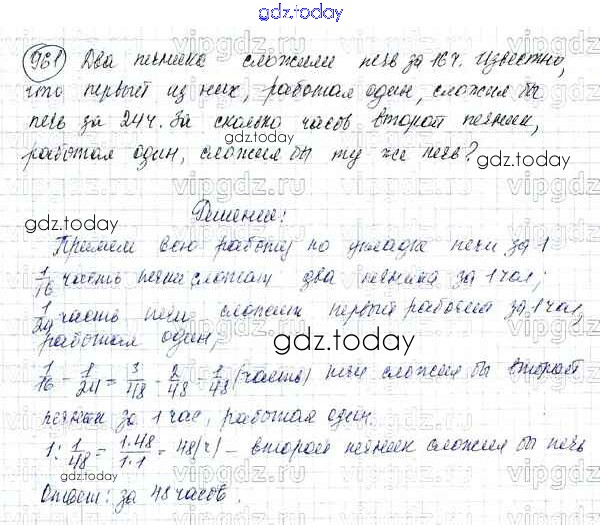 gdz.today
961 Два печника сложили печь за 16 ч. Известно,
что первый из них, работая один, сложил бы
печь за 24 ч. За сколько часов второй печник,
работая один, сложил бы ту же печь?
gdz.today
gdz.today
Решение:
Примем всю работу по укладке печи за 1
1/16 часть печи сложат два печника за 1 час;
1/24 часть печи сложит первый рабочий за 1 час,
работая один;
gdz.today
1/16 - 1/24 = 3/48 - 2/48 = 1/48 (часть) печи сложил бы второй
печник за 1 час, работая один.
1 : 1/48 = 1·48/1·1 = 48 (ч) – второй печник сложил бы печь
Ответ: за 48 часов.
gdz.today